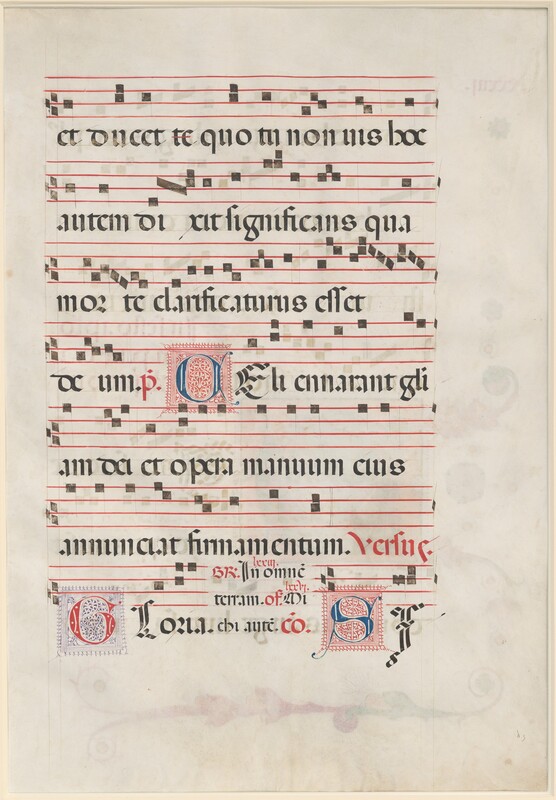 et ducet te quo tu non uis hoc
autem di xit significans qua
mor te clarificaturus esset
de um. p̃. C Eli ennarant gli
am dei et opera manuum eius
annunciat firmamentum. Versus.
GR. In omnē lxxiii.
terram. of. Mi lxxvi.
G Loria. chi autē cō. S I